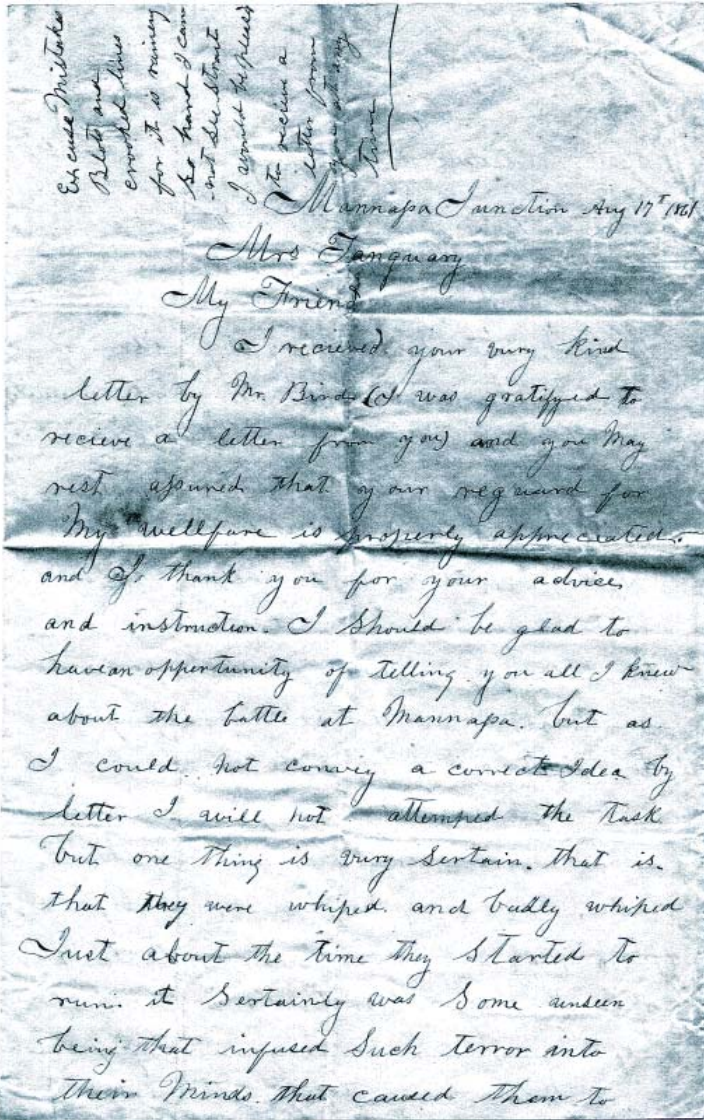 Excuse Mistakes
Blots and
crooked lines
for it is rainey
so hard I can
not see strait
I would be pleasd
to recieve a
letter from
you at any
time
Mannapa Junction Aug 17t 1861
Mrs Tanguary
My Friend
I recieved your vury kind
letter by Mr. Bird (I was gratifyed to
recieve a letter from you) and you May
rest assured that your reguard for
My wellfare is properly appreceated.
and I thank you for your advice
and instruction. I Should be glad to
have an opportunity of telling you all I knew
about the battle at Mannapa. but as
I could not convig a correct Idea by
letter I will not attemped the task
but one thing is vury Sertain. that is.
that they were whiped. and badly whiped
Just about the time they Started to
run. it Sertainly was Some unseen
being that infused Such terror into
their Minds. that caused them to